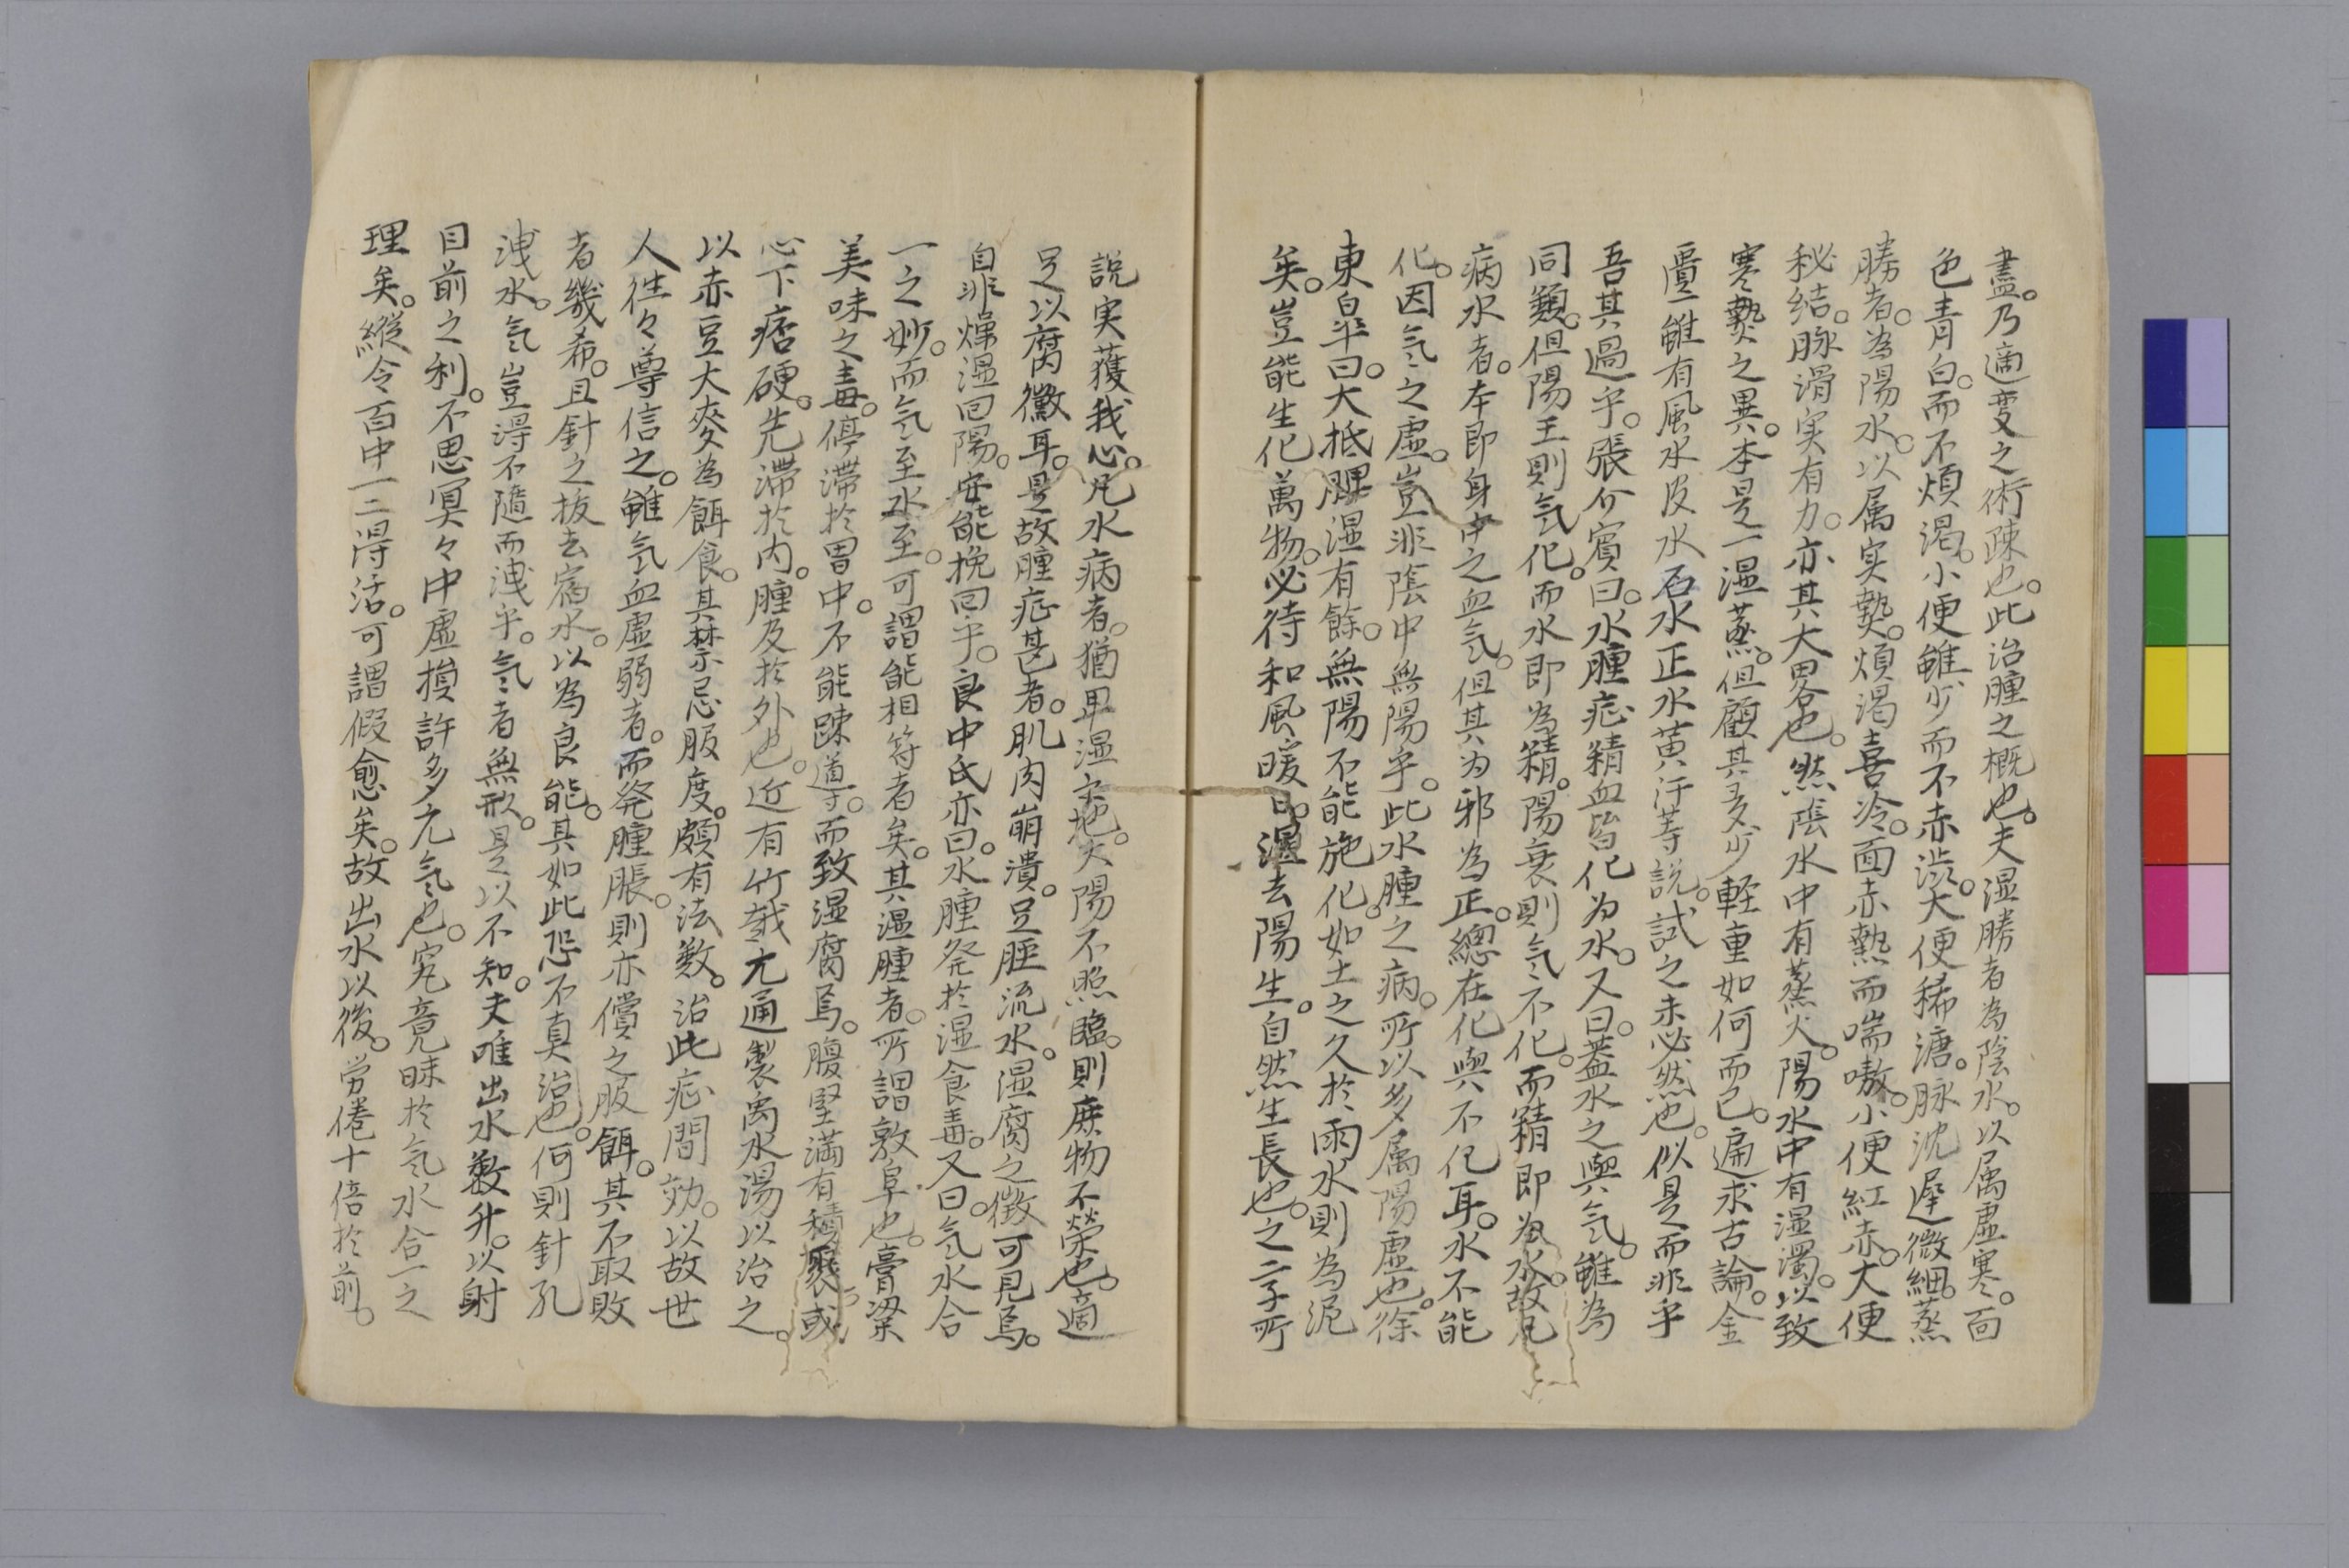 盡。乃適変之術疎也。此治腫之概也。夫湿勝者為陰水。以属虚寒。面
色青白。而不煩渇。小便雖少而不赤渋。大便稀溏。脉沈遅微細。蒸
勝者。為陽水。以属実熱。煩渇喜冷。面赤熱而喘嗽。小便紅赤。大便
秘結。脉滑実有力。亦其大畧也。然陰水中有蒸火。陽水中有湿濁。以致
寒熱之異。本是一湿蒸。但顧其多少軽重如何而已。遍求古論。金
匱雖有風水皮水石水正水黄汗等説。試之未必然也。似是而非乎
吾其過乎。張介賓曰。水腫症精血皆化为水。又曰。蓋水之與气。雖為
同類。但陽王則气化。而水即為精。陽衰則气不化。而精即為水。故凡
病水者。本即身中之血气。但其为邪為正。總在化與不化耳。水不能
化。因气之虚。豈非陰中無陽乎。此水腫之病。所以多属陽虚也。徐
東皐曰。大抵脾湿有餘。無陽不能施化。如土之久於雨水則為泥
矣。豈能生化萬物。必待和風暖日。湿去陽生。自然生長也。之二子所
説実獲我心。凡水病者。猶卑湿之地。大陽不照臨。則庶物不榮也。適
足以腐黴耳。是故腫症甚者。肌肉崩潰。足脛流水。湿腐之徴可見焉。
自非燥湿回陽。安能挽回乎。良中氏亦曰。水腫発於湿食毒。又曰。气水合
一之妙。而气至水至。可謂能相符者矣。其湿腫者。所謂敦阜也。膏粱
美味之毒。停滞於胃中。不能疎導。而致湿腐焉。腹堅満有積聚。或
心下痞硬。先滞於内。腫及於外也。近有竹越元通製禹水湯以治之。
以赤豆大麥為餌食。其禁忌服度。頗有法數。治此症間効。以故世
人往々尊信之。雖气血虚弱者。而発腫脹。則亦償之服餌。其不取敗
者幾希。且針之抜去宿水。以為良能。其如此恐不真治也。何則針孔
洩水。气豈得不隨而洩乎。气者無形。是以不知。夫唯出水數升。以射
目前之利。不思冥々中虚損許多元气也。究竟昧於气水合一之
理矣。縱令百中一二得活。可謂假愈矣。故出水以後。労倦十倍於前。